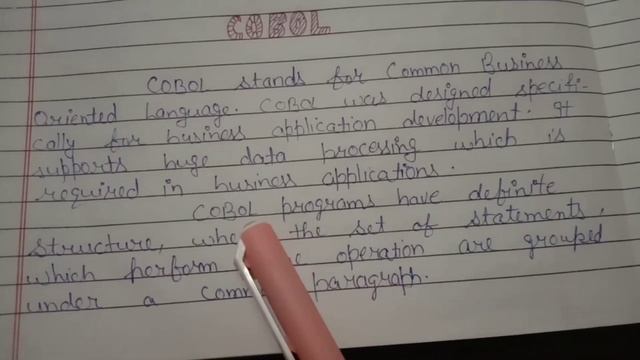 COBOL
COBOL stands for Common Business
Oriented Language. COBOL was designed specifi-
cally for business application development. It
supports huge data processing which is
required in business applications.
COBOL programs have definite
structure, the set of statements,
which perform operation are grouped
under a paragraph.